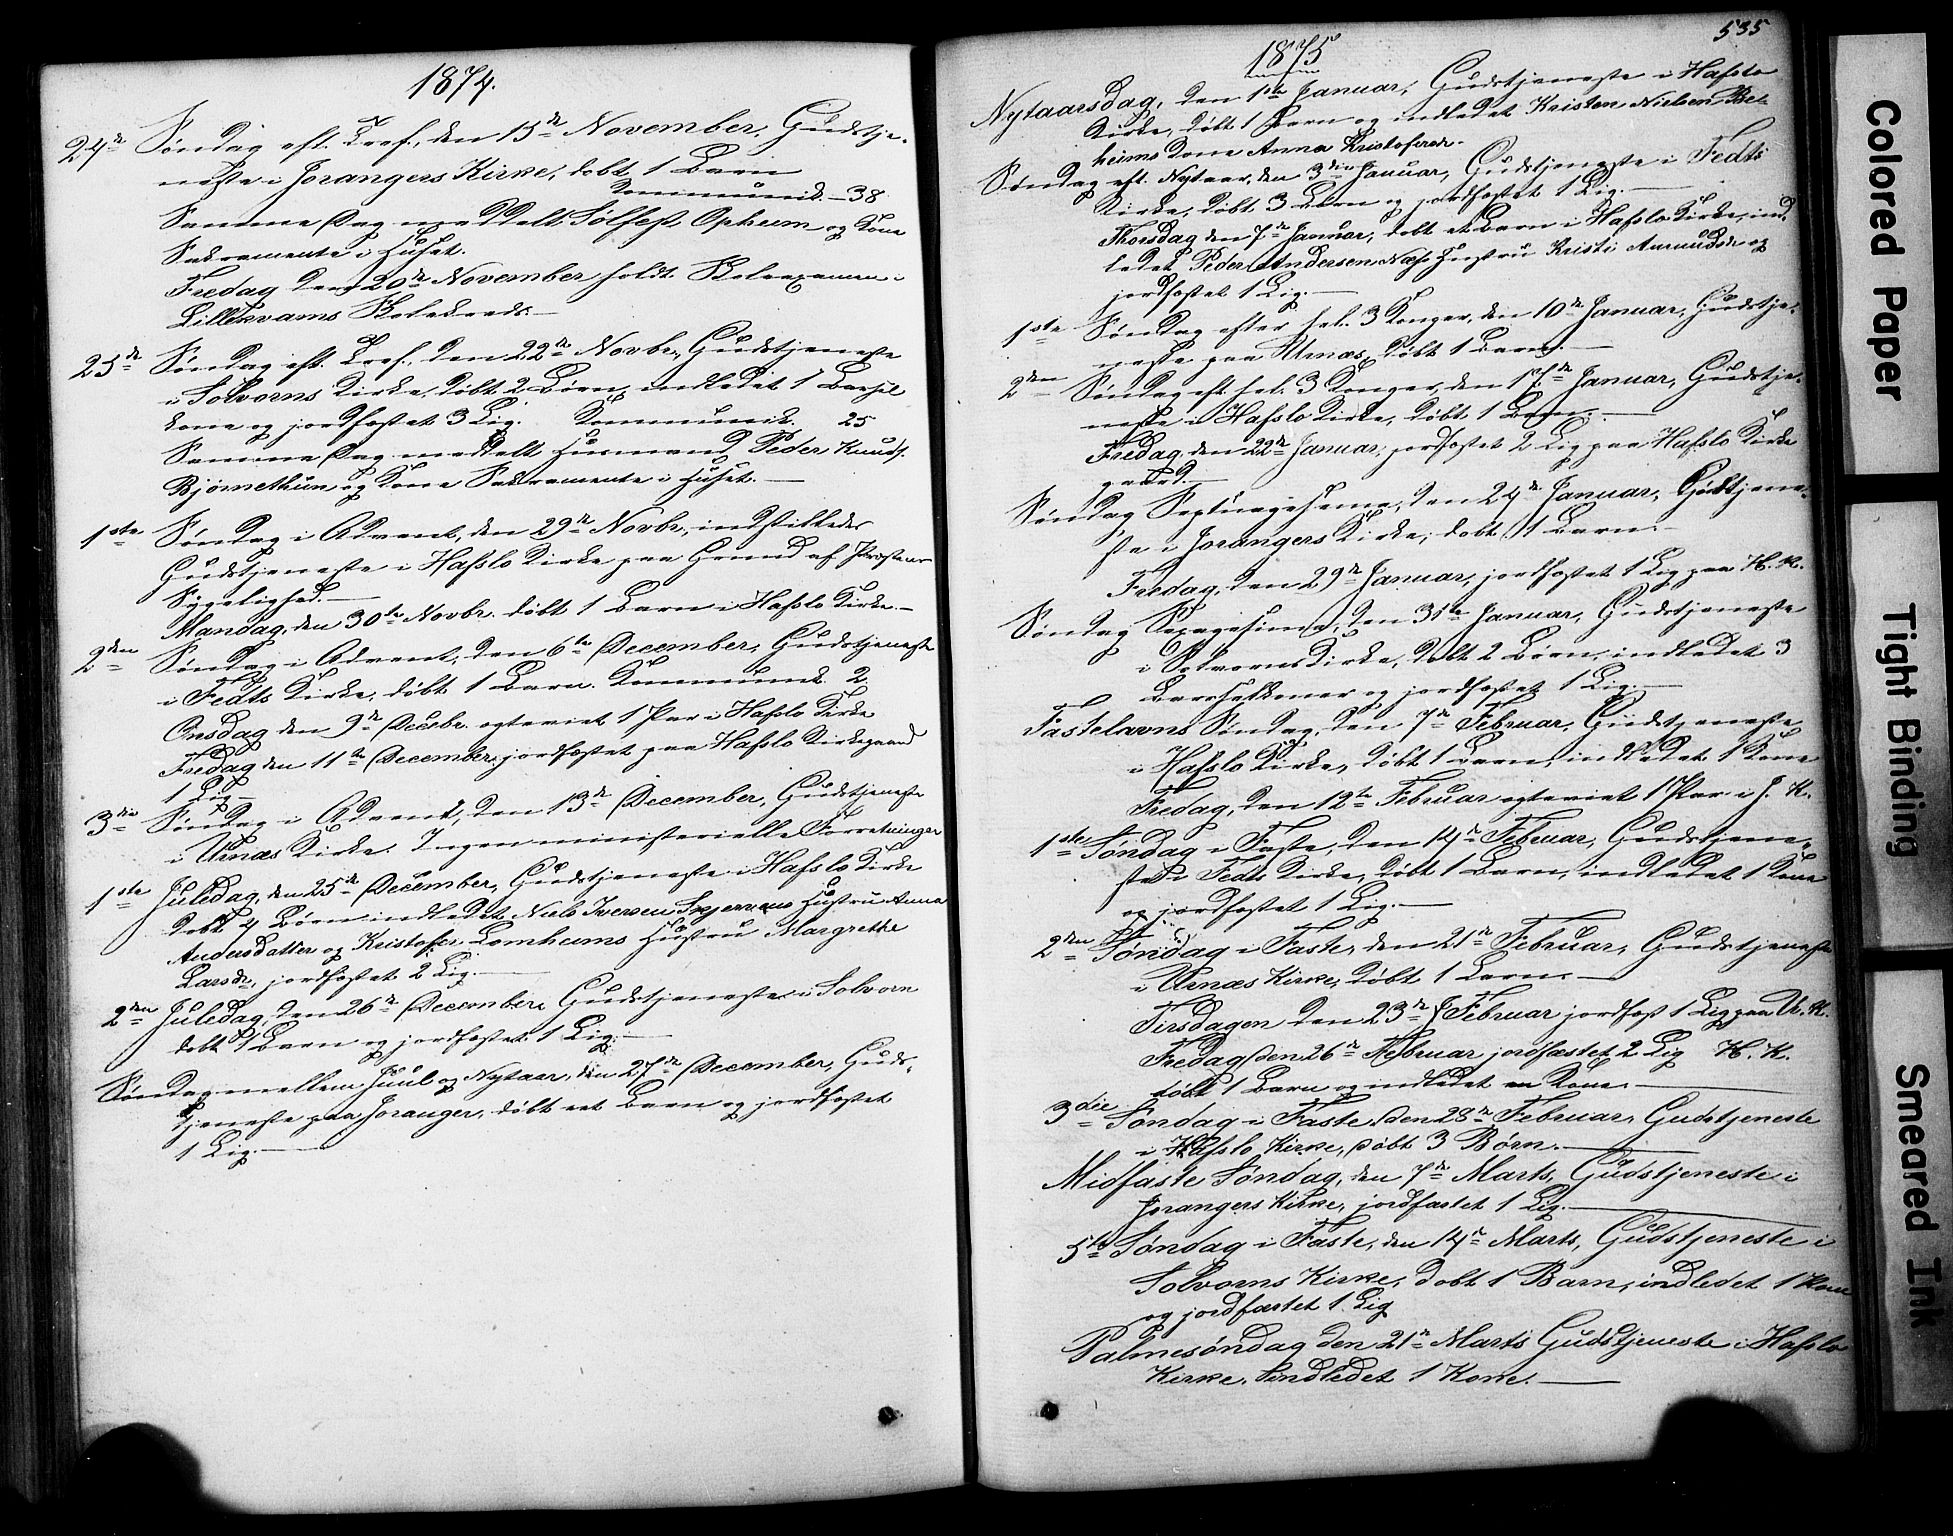 1874.
24de Søndag eft. Tref., den 15de November, Gudstje-
neste i Jorangers Kirke, døbt 1 Barn
Kommunik. — 38
Samme Dag meddelt Sølfest Opheim og Kone
Sakramente i Huset.
Fredag den 20de November holdt Skoleexamen i
Lillekvams Skolekreds.—
25de Søndag eft. Tref., den 22de Novbr., Gudstjeneste
i Solvorns Kirke, døbt 2 Børn, indledet 1 Barsel
kone og jordfæstet 3 Lig. Kommunik. 25
Samme Dag meddelt Husmand Peder Knuds.
Bjørnethun og Kone Sakramente i Huset.—
1ste Søndag i Advent, den 29de Novbr., indstilledes
Gudstjeneste i Hafslo Kirke paa Grund af Præstens
Sygelighed.—
Mandag, den 30te Novbr. døbt 1 Barn i Hafslo Kirke.—
2den Søndag i Advent, den 6te December, Gudstjeneste
i Fedts Kirke, døbt 1 Barn. Kommunik. 2.
Onsdag den 9de Decebr. egteviet 1 Par i Hafslo Kirke
Fredag den 11te December jordfæstet paa Hafslo Kirkegaard
1 Lig.—
3die Søndag i Advent, den 13de December, Gudstjeneste
i Urnæs Kirke. Ingen ministerielle Forretninger
1ste Juledag, den 25de December, Gudstjeneste i Hafslo Kirke
døbt 4 Børn indledet Niels Iversen Skjervens Hustru Anna
Andersdatter og Kristofer Lomheims Hustru Margrethe
Larsdr., jordfæstet 2 Lig.—
2den Juledag, den 26de December Gudstjeneste i Solvorn
døbt 1 Barn og jordfæstet 1 Lig.—
Søndag mellem Juul og Nytaar, den 27de December, Guds-
tjeneste paa Joranger, døbt eet Barn og jordfæstet
1 Lig.—
535
1875
Nytaarsdag, den 1ste Januar, Gudstjeneste i Hafslo
Kirke, døbt 1 Barn og indledet Kristen Nielsen Bol-
heims Kone Anna Kristofersdr.
Søndag eft. Nytaar, den 3die Januar, Gudstjeneste i Fedts
Kirke, døbt 3 Børn og jordfæstet 1 Lig.—
Thorsdag den 7de Januar, døbt et Barn i Hafslo Kirke, ind
ledet Peder Andersen Næss Hustru Kristi Amundsdr og
jordfæstet 1 Lig.—
1ste Søndag efter hel. 3 Konger, den 10de Januar, Gudstje-
neste paa Urnæs, døbt 1 Barn.—
2den Søndag eft. hel. 3 Konger, den 17de Januar, Gudstje-
neste i Hafslo Kirke, døbt 1 Barn.—
Fredag, den 22de Januar, jordfæstet 2 Lig paa Hafslo Kirke
gaard.—
Søndag Septuagesima, den 24de Januar, Gudstjene-
ste i Jorangers Kirke, døbt 1 Barn.—
Fredag, den 29de Januar, jordfæstet 1 Lig paa H. K.
Søndag Sexagesima, den 31te Januar, Gudstjeneste
i Solvorns Kirke, døbt 2 Børn, indledet 3
Barselkoner og jordfæstet 1 Lig.—
Fastelavns Søndag, den 7de Februar, Gudstjeneste
i Hafslo Kirke, døbt 1 Barn, indledet 1 Kone
Fredag, den 12te Februar egteviet 1 Par i J. K.
1ste Søndag i Faste, den 14de Februar, Gudstjene-
ste i Fedts Kirke, døbt 1 Barn, indledet 1 Kone
og jordfæstet 1 Lig.—
2den Søndag i Faste, den 21de Februar, Gudstjeneste
i Urnæs Kirke, døbt 1 Barn.—
Tirsdagen den 23de Februar jordfæst 1 Lig paa U. K.
Fredag den 26de Februar jordfæstet 2 Lig H. K.
døbt 1 Barn og indledet en Kone.—
3die Søndag i Faste, den 28de Februar, Gudstjeneste
i Hafslo Kirke, døbt 3 Børn.—
Midfaste Søndag, den 7de Marts, Gudstjeneste i
Jorangers Kirke, jordfæstet 1 Lig.—
5te Søndag i Faste, den 14de Marts, Gudstjeneste i
Solvorns Kirke, døbt 1 Barn, indledet 1 Kone
og jordfæstet 1 Lig
Palmesøndag den 21de Marts Gudstjeneste i Hafslo
Kirke. Indledet 1 Kone.—
Colored Paper
Tight Binding
Smeared Ink